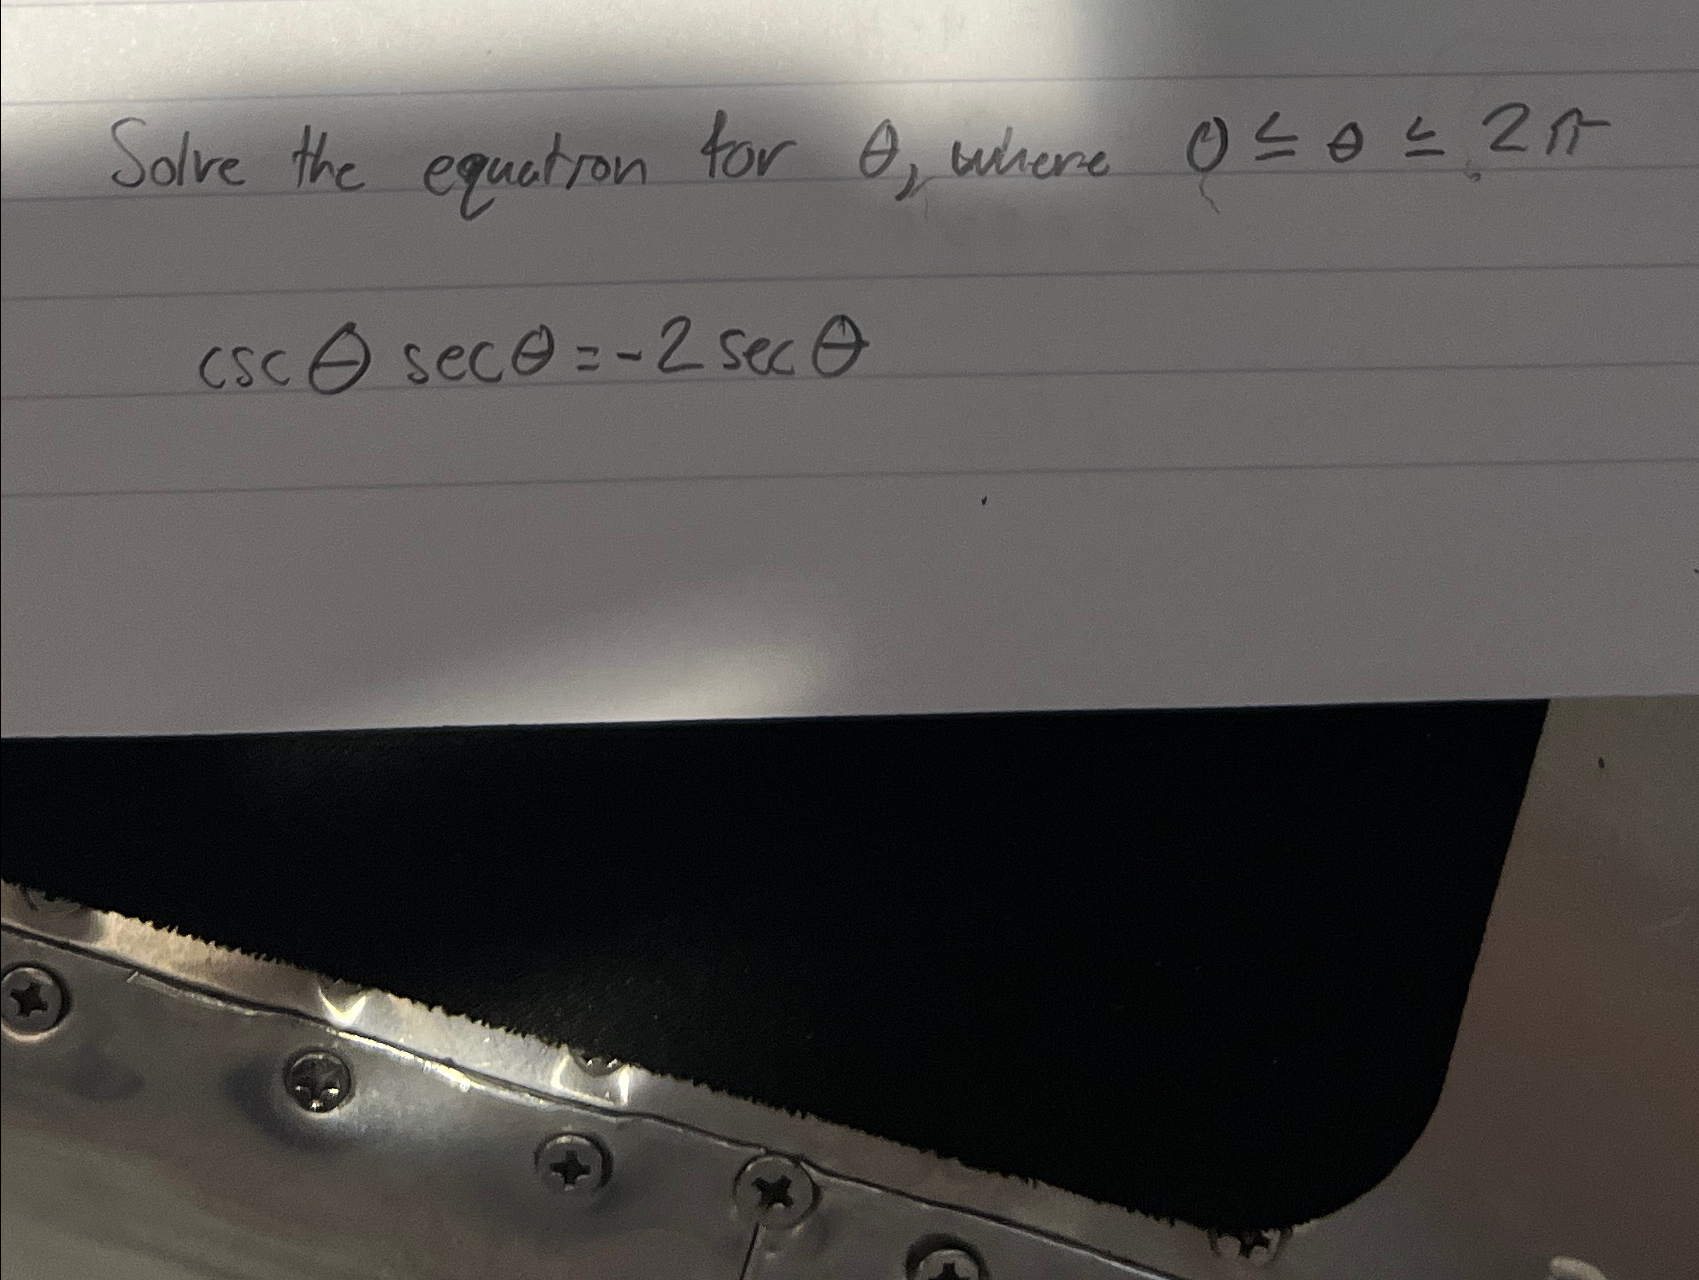 Solve the equation for θ, where 0 ≤ θ ≤ 2π
csc θ sec θ = -2 sec θ